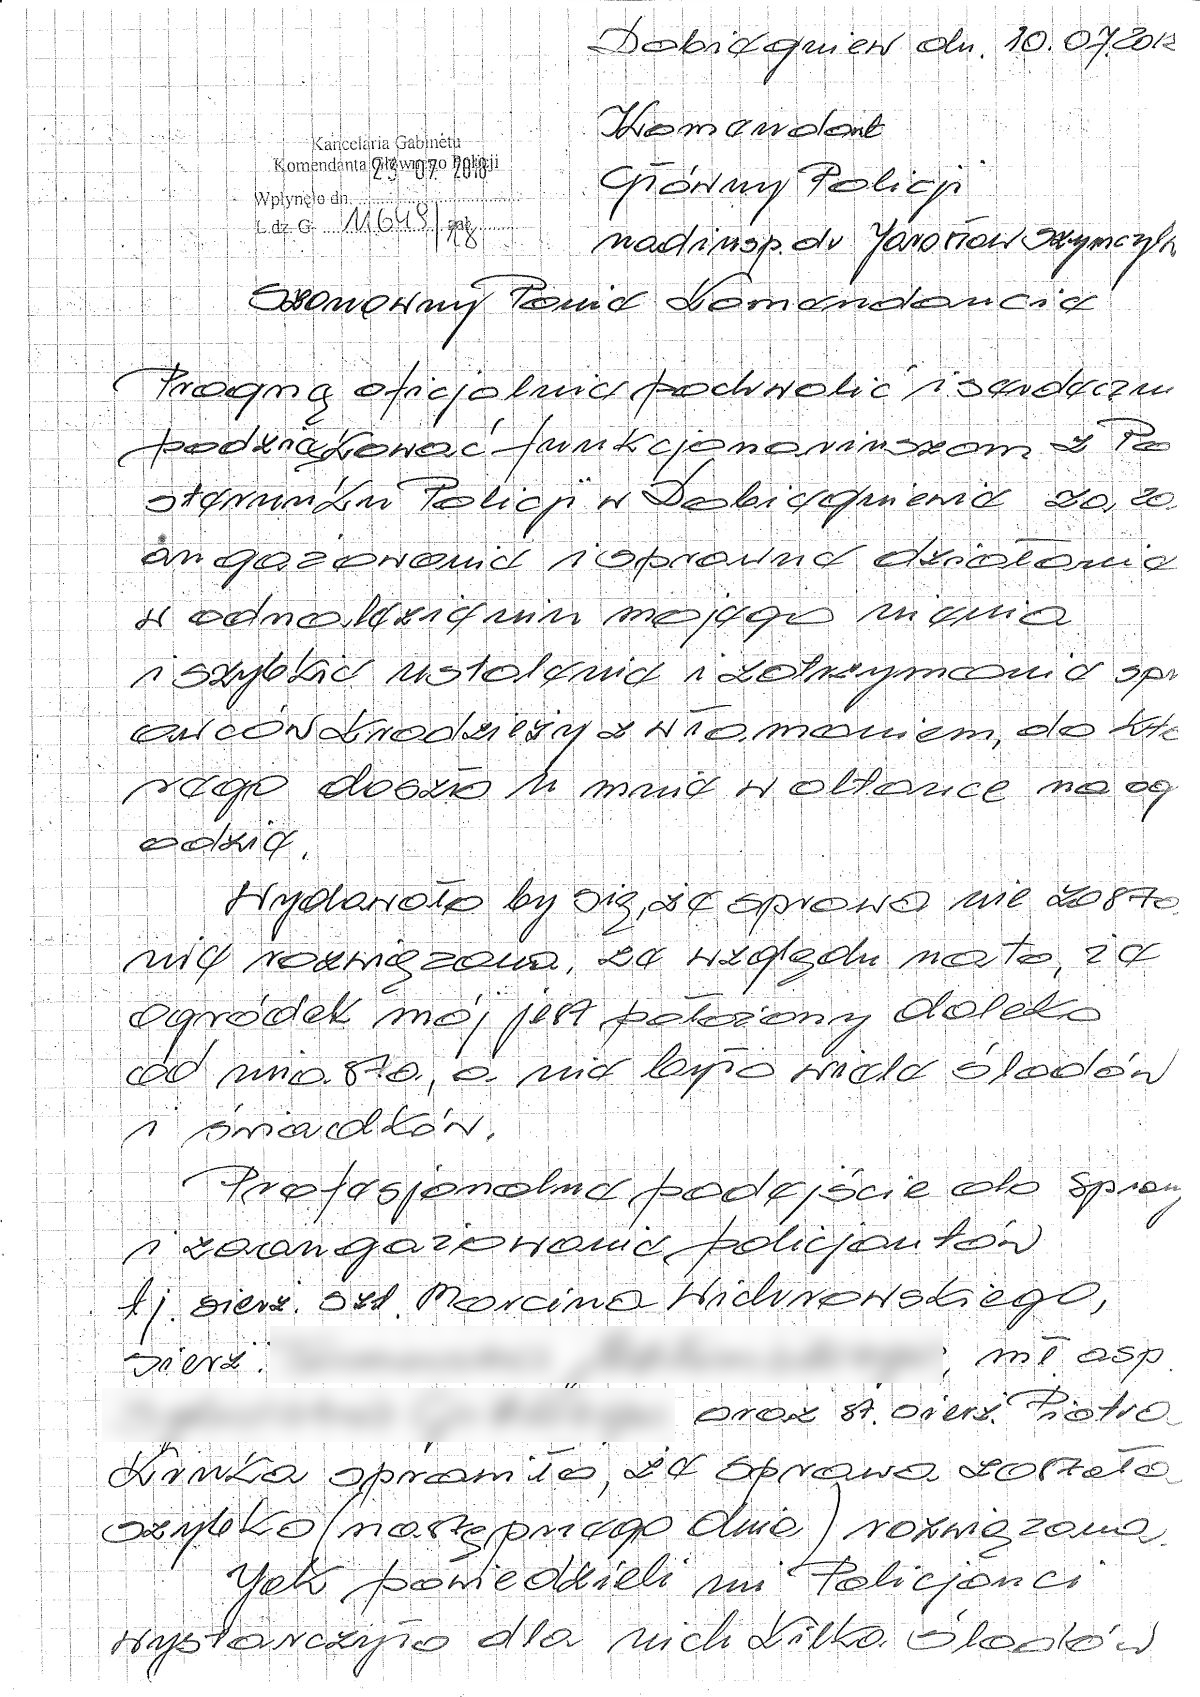 Dobiegniew dn. 10.07.2018
Kancelaria Gabinetu
Komendanta Głównego Policji
23. 07. 2018
Wpłynęło dn.
L. dz. G. 11649/18 zał.
Komendant
Główny Policji
nadinsp. dr Jarosław Szymczyk
Szanowny Panie Komendancie
Pragnę oficjalnie pochwalić i serdeczn
podziękować funkcjonariuszom z Po
sterunku Policji w Dobiegniewie za, za
angażowanie i sprawne działanie
w odnalezieniu mojego mienia
i szybkie ustalenie i zatrzymanie spr
awców kradzieży z włamaniem, do któ
rego doszło u mnie w altance na og
odzie.
Wydawało by się, że sprawa nie zosta
nie rozwiązana, ze względu na to, że
ogródek mój jest położony daleko
od miasta, a nie było wiele śladów
i świadków.
Profesjonalne podejście do sprawy
i zaangażowanie policjantów
tj. sierż. szt. Marcina Widurowskiego,
sierż. , mł asp.
oraz st. sierż. Piotra
Kruka sprawiło, że sprawa została
szybko (następnego dnia) rozwiązana.
Jak powiedzieli mi Policjanci
wystarczyło dla nich kilka śladów